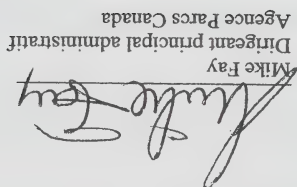 Mike Fay
Mike Fay
Dirigeant principal administratif
Agence Parcs Canada